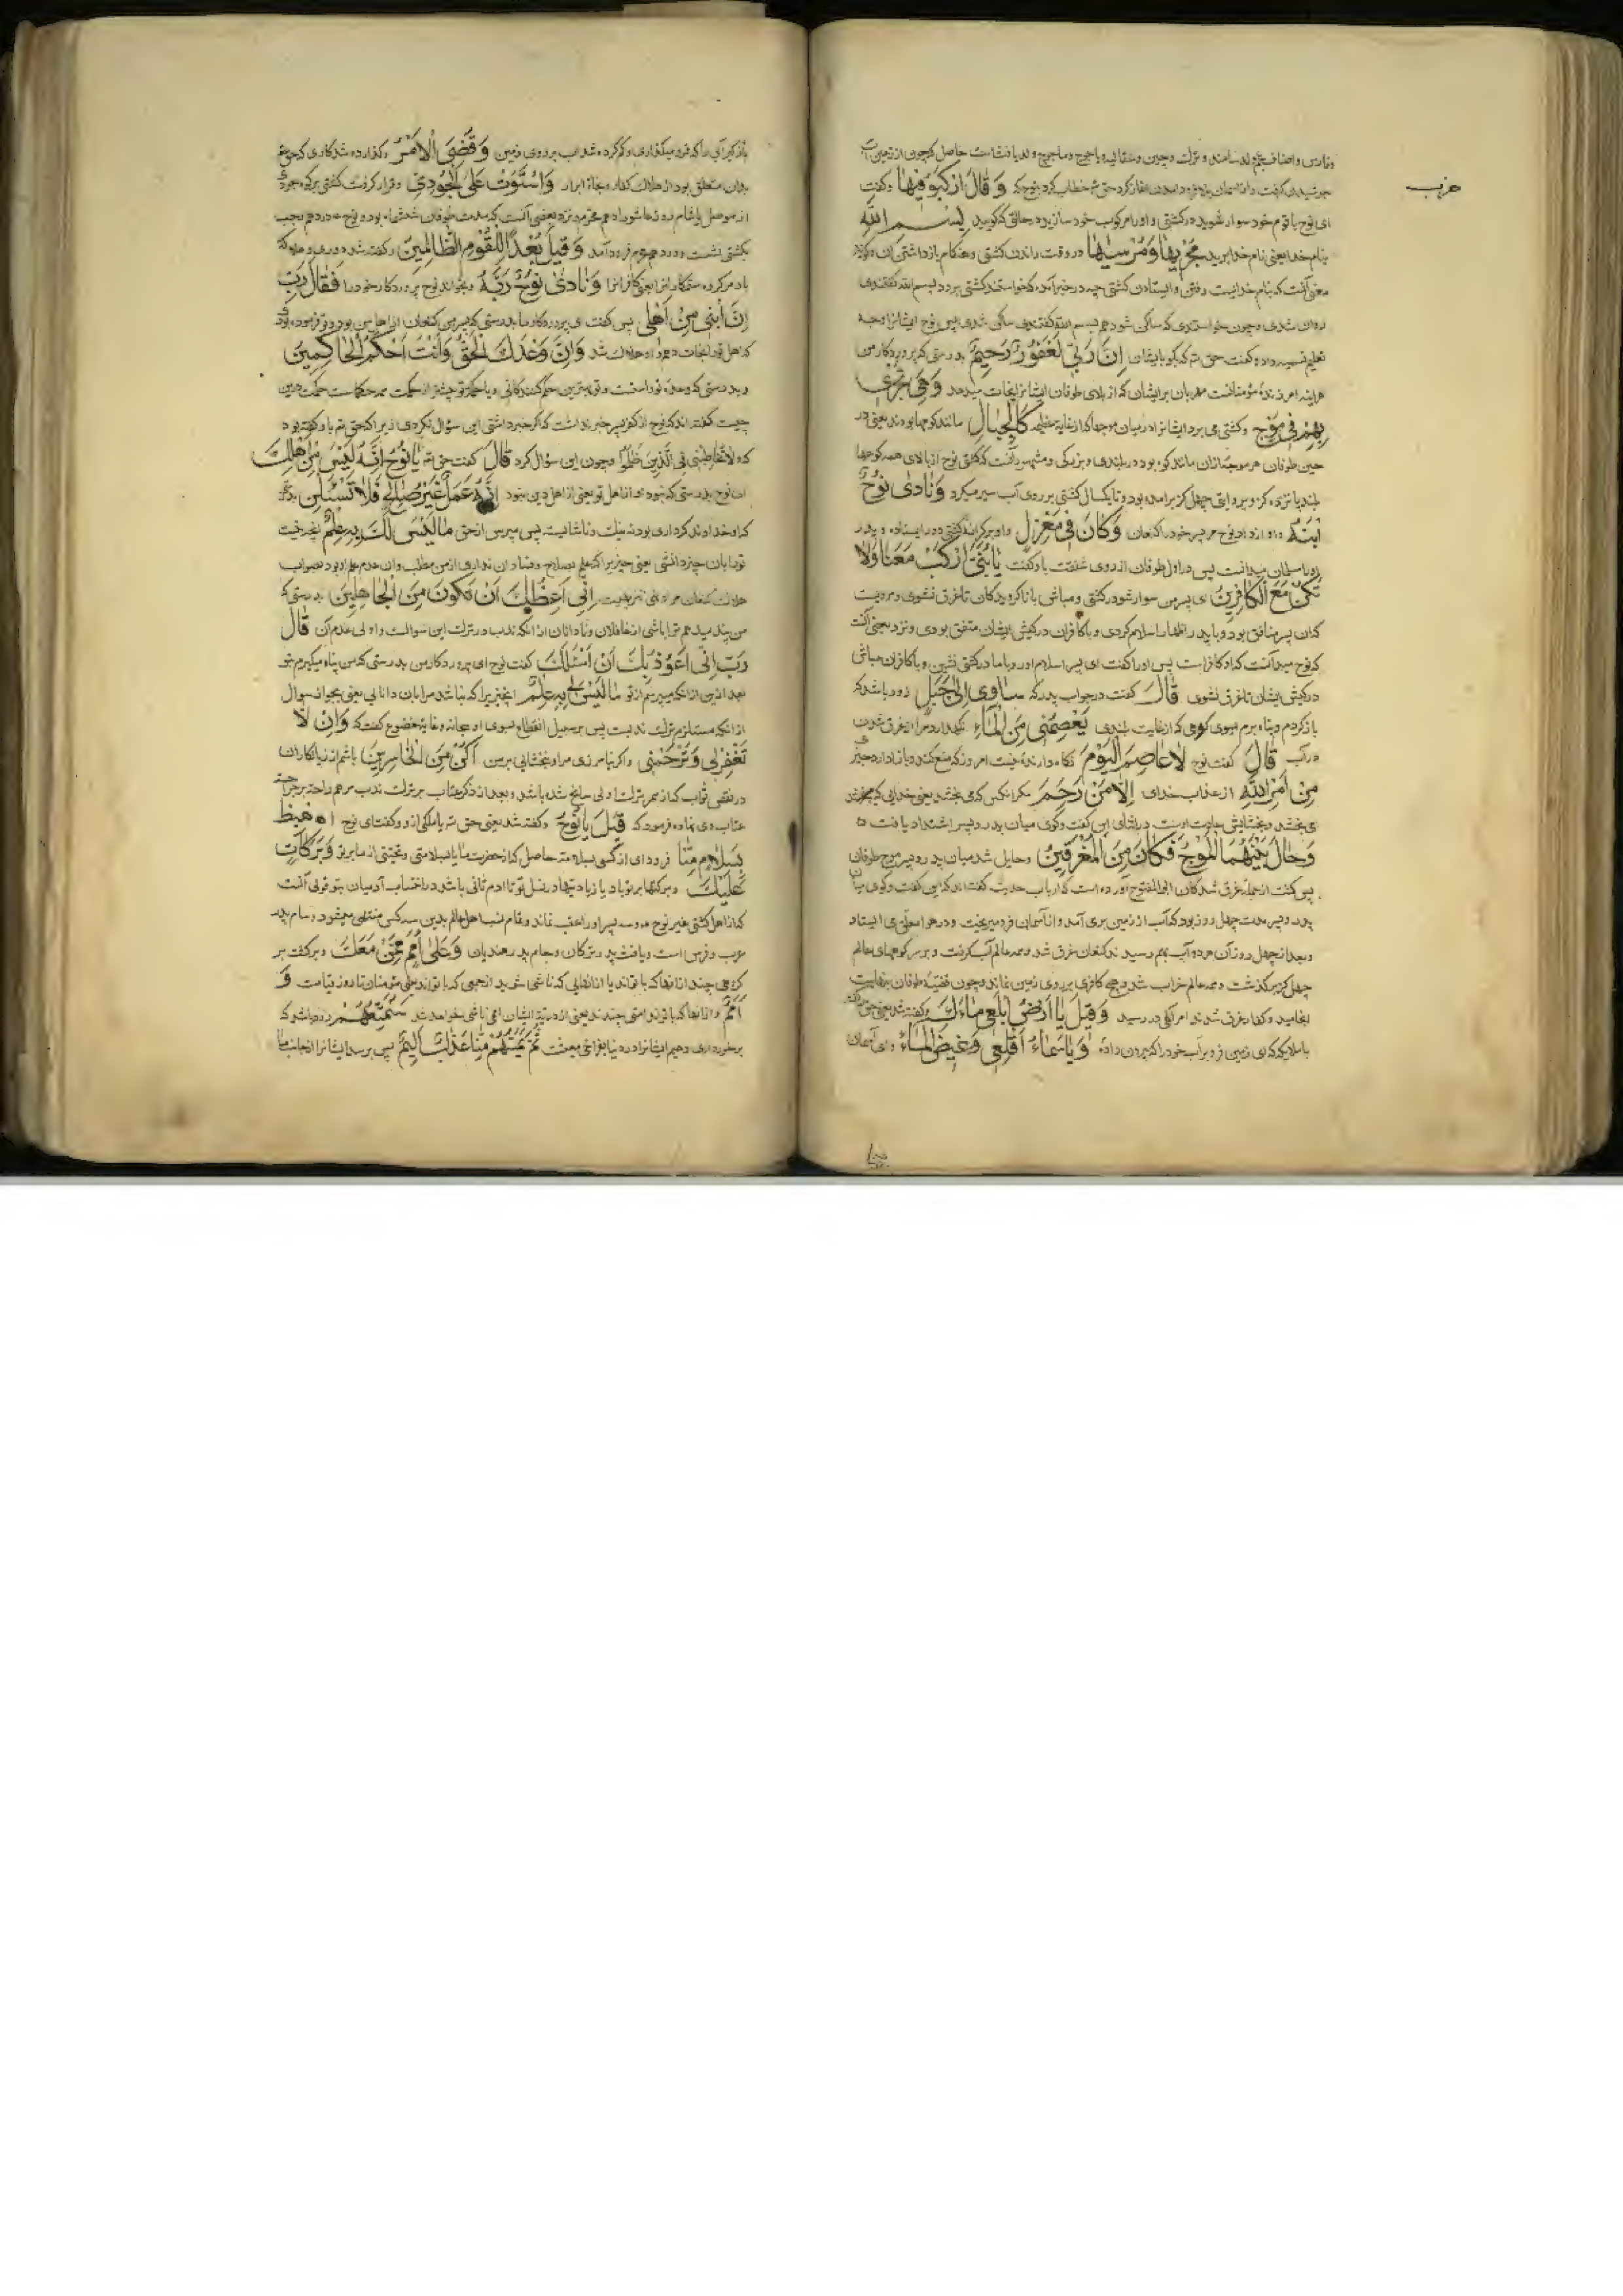 حزب
وفارس و اصناف عجم اند
جوشیدن گرفت و از آسمان وَقَالَ ارْكَبُوا فِيهَا وگفت
ای نوح با قوم خود سوار شوید در کشتی و او را مرکوب خود سازید در حالتی که گویید بِسْمِ اللَّهِ
بنام خدا یعنی نام خدا برید مَجْرٰیهَا وَمُرْسٰیهَا در وقت راندن کشتی و هنگام بازداشتن آن
معنی آنست که بنام خداست رفتن و ایستادن کشتی چه در خبر آمده که خواستند کشتی برود بسم الله گفتندی
روان شدی و چون خواستندی که ساکن شود هم بسم الله گفتندی ساکن شدی پس نوح ایشانرا
تعلیم تسمیه داده گفت حق تم که بگو بایشان إِنَّ رَبِّي لَغَفُورٌ رَحِيمٌ بدرستی که پروردگار من
هر آینه آمرزنده مؤمنانست مهربان بر ایشان که از بلای طوفان ایشانرا نجات میدهد وَهِيَ تَجْرِي
بِهِمْ فِي مَوْجٍ وکشتی می برد ایشانرا در میان موجها از غایة عظیمه كَالْجِبَالِ مانند کوهها بودند یعنی در
حین طوفان هر موجه ازان مانند کوه بود در بلندی و بزرکی و مشهور آنست که کشتی نوح از بالای همه کوهها
بلند پانزده کز و بروایتی چهل کز برآمده بود و تا یکسال کشتی بر روی آب سیر میکرد وَنَادَى نُوحٌ
ابْنَهُ و آواز داد نوح مر پسر خود را کنعان وَكَانَ فِي مَعْزِلٍ و او بر کرانه کشتی دور ایستاده و پدر
او را مسلمان میدانست پس در اول طوفان از روی شفقت باو گفت يَا بُنَيَّ ارْكَبْ مَعَنَا وَلَا
تَكُنْ مَعَ الْكَافِرِينَ ای پسر من سوار شو در کشتی و مباش با ناکرویدکان تا غرق نشوی و مرویست
که آن پسر منافق بود و با پدر اظهار اسلام کردی و با کافران در کیش ایشان متفق بودی و نزد بعضی آنست
که نوح میدانست که او کافر است پس او را گفت ای پسر اسلام آور و با ما در کشتی نشین و با کافران مباش
در کیش ایشان تا غرق نشوی قَالَ گفت در جواب پدر که سَآوِي إِلَى جَبَلٍ زود باشد که
باز کردم و پناه برم بسوی کوهی که از غایت بلندی يَعْصِمُنِي مِنَ الْمَاءِ نگهدارد مرا از غرق شدن
در آب قَالَ گفت نوح لَا عَاصِمَ الْيَوْمَ نگاه دارنده نیست امروز که منع کند و باز دارد چیزی
مِنْ أَمْرِ اللَّهِ از عذاب خدای إِلَّا مَنْ رَحِمَ مگر آنکس که می بخشد یعنی خدایی که
می بخشد و بخشایش عادت اوست در اثنای این گفت وگوی میان پدر و پسر اشتداد یافت
وَحَالَ بَيْنَهُمَا الْمَوْجُ فَكَانَ مِنَ الْمُغْرَقِينَ وحایل شد میان پدر و پسر موج طوفان
پس گشت از جمله غرق شدکان ابو الفتوح آورده است که ارباب حدیث گفته اند که این گفت وگوی میان
پدر و پسر مدت چهل روز بود که آب از زمین بر می آمد و از آسمان فرو میریخت و در هوا معلق می ایستاد
و بعد از چهل روز آن هر دو آب بهم رسیدند و کنعان غرق شد و همه عالم آب کرفت و بر سر کوههای عالم
چهل کز بر گذشت و همه عالم خراب شد و هیچ کافری بر روی زمین نماند و چون قضیّه طوفان بنهایت
انجامید و کفار غرق شدند امر الهی در رسید وَقِيلَ يَا أَرْضُ ابْلَعِي مَاءَكِ وگفته شد یعنی حق تم
که ای زمین فرو بر آب خود را که بیرون داده وَيَا سَمَاءُ أَقْلِعِي وَغِيضَ الْمَاءُ و ای آسمان
باز گیر آبی را که فرو میگذاری و کم کرده شد آب بر روی زمین وَقُضِيَ الْأَمْرُ وگذارده شد کاری که حق تم
بدان متعلق بود از هلاک کفار و نجاة ابرار وَاسْتَوَتْ عَلَى الْجُودِيِّ وقرار گرفت کشتی بر کوه جودی
از موصل یا شام روز عاشورا دهم محرم و نزد بعضی آنست که مدت طوفان ششماه بود و نوح در دهم رجب
بکشتی نشست و در دهم محرم فرود آمد وَقِيلَ بُعْدًا لِلْقَوْمِ الظَّالِمِينَ وگفته شد دوری و هلاکه
باد مر کروه ستمکاران را یعنی کافرانرا وَنَادَى نُوحٌ رَبَّهُ وبخواند نوح پروردکار خود را فَقَالَ رَبِّ
إِنَّ ابْنِي مِنْ أَهْلِي پس گفت ای پروردکار ما بدرستی که پسر من کنعان از اهل من بود و تو فرموده بودی
که اهل تو را نجات دهم و او هلاک شد وَإِنَّ وَعْدَكَ الْحَقُّ وَأَنْتَ أَحْكَمُ الْحَاكِمِينَ
و بدرستی که وعده تو راست و تو بهترین حکم کنندکانی
چیست گفته اند که نوح از کفر پسر خبر نداشت که اگر خبر داشتی این سوال نکردی زیرا که حق تم با او گفته بود
که وَلَا تُخَاطِبْنِي فِي الَّذِينَ ظَلَمُوا وچون این سؤال کرد قَالَ گفت حق تم يَا نُوحُ إِنَّهُ لَيْسَ مِنْ أَهْلِكَ
ای نوح بدرستی که نبود او از اهل تو یعنی از اهل دین نبود إِنَّهُ عَمَلٌ غَيْرُ صَالِحٍ فَلَا تَسْئَلْنِ بدرستی
که او خداوند کرداری بود نه نیک و ناشایسته پس مپرس از حق مَا لَيْسَ لَكَ بِهِ عِلْمٌ آنچه نیست
تو را بآن چیز دانشی یعنی چیزیرا که علم بصلاح و فساد آن نداری از من مطلب و آن عدم علم او بود بصواب
هلاک کنعان إِنِّي أَعِظُكَ أَنْ تَكُونَ مِنَ الْجَاهِلِينَ بدرستی که
من پند میدهم ترا باشی از غافلان و نادانان از آنکه ندب در ترک این سوالست و اولی عدم آن قَالَ
رَبِّ إِنِّي أَعُوذُ بِكَ أَنْ أَسْئَلَكَ گفت نوح ای پروردکار من بدرستی که من پناه میگیرم بتو
بعد ازین از آنکه بپرسم از تو مَا لَيْسَ لِي بِهِ عِلْمٌ آنچیزیرا که نباشد مرا بآن دانایی یعنی نخواهم سوال
از آنکه مستلزم ترک ندبست پس بر سبیل انقطاع بسوی او سبحانه و غایة خضوع گفت که وَإِنْ لَا
تَغْفِرْ لِي وَتَرْحَمْنِي واگر نیامرزی مرا و نبخشایی بر من أَكُنْ مِنَ الْخَاسِرِينَ باشم از زیانکاران
در نقص ثواب که از ممر ترک اولی سانح شده باشد و بعد از ذکر عتاب بر ترک ندب مرهم راحت بر جراحت
عتاب وی نهاده فرمود که قِيلَ يَا نُوحُ وگفته شد یعنی حق تم یا ملکی از او گفت ای نوح اهْبِطْ
بِسَلَامٍ مِنَّا فرود آی از کشتی بسلامت حاصل که از حضرت ما یا بسلامتی و تحیتی از ما بر تو وَبَرَكَاتٍ
عَلَيْكَ وبرکتها بر تو باد یا زیادتیها در نسل تو تا آدم ثانی باشد
که از اهل کشتی غیر نوح و سه پسر او را عقب نماند و تمام نسب اهل عالم بدین سه کس منتهی میشود و سام پدر
عرب و فرس است و یافث پدر ترکان و حام پدر هندیان وَعَلَى أُمَمٍ مِمَّنْ مَعَكَ وبرکت بر
کروهی چند از آنها که با تواند یا از آنهایی که ناشی شوند از جمعی که با تواند یعنی مؤمنان تا روز قیامت وَ
أُمَمٌ و از آنها که با تو اند امتی چندند یعنی از ذریة ایشان امم ناشی خواهد شد سَنُمَتِّعُهُمْ زود باشد که
برخورداری دهیم ایشانرا در دنیا بفراخی معیشت ثُمَّ يَمَسُّهُمْ مِنَّا عَذَابٌ أَلِيمٌ پس برسد ایشانرا از جانب ما